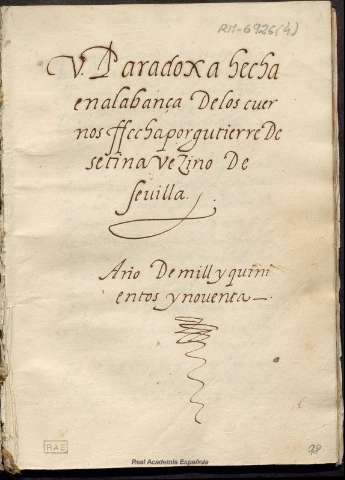 RM-6926(4)
V. Paradoxa hecha
en alabança De los cuer
nos ffecha por gutierre De
setina Vezino De
sevilla.
Año De mill y quini
entos y noventa
RAE
Real Academia Española
98